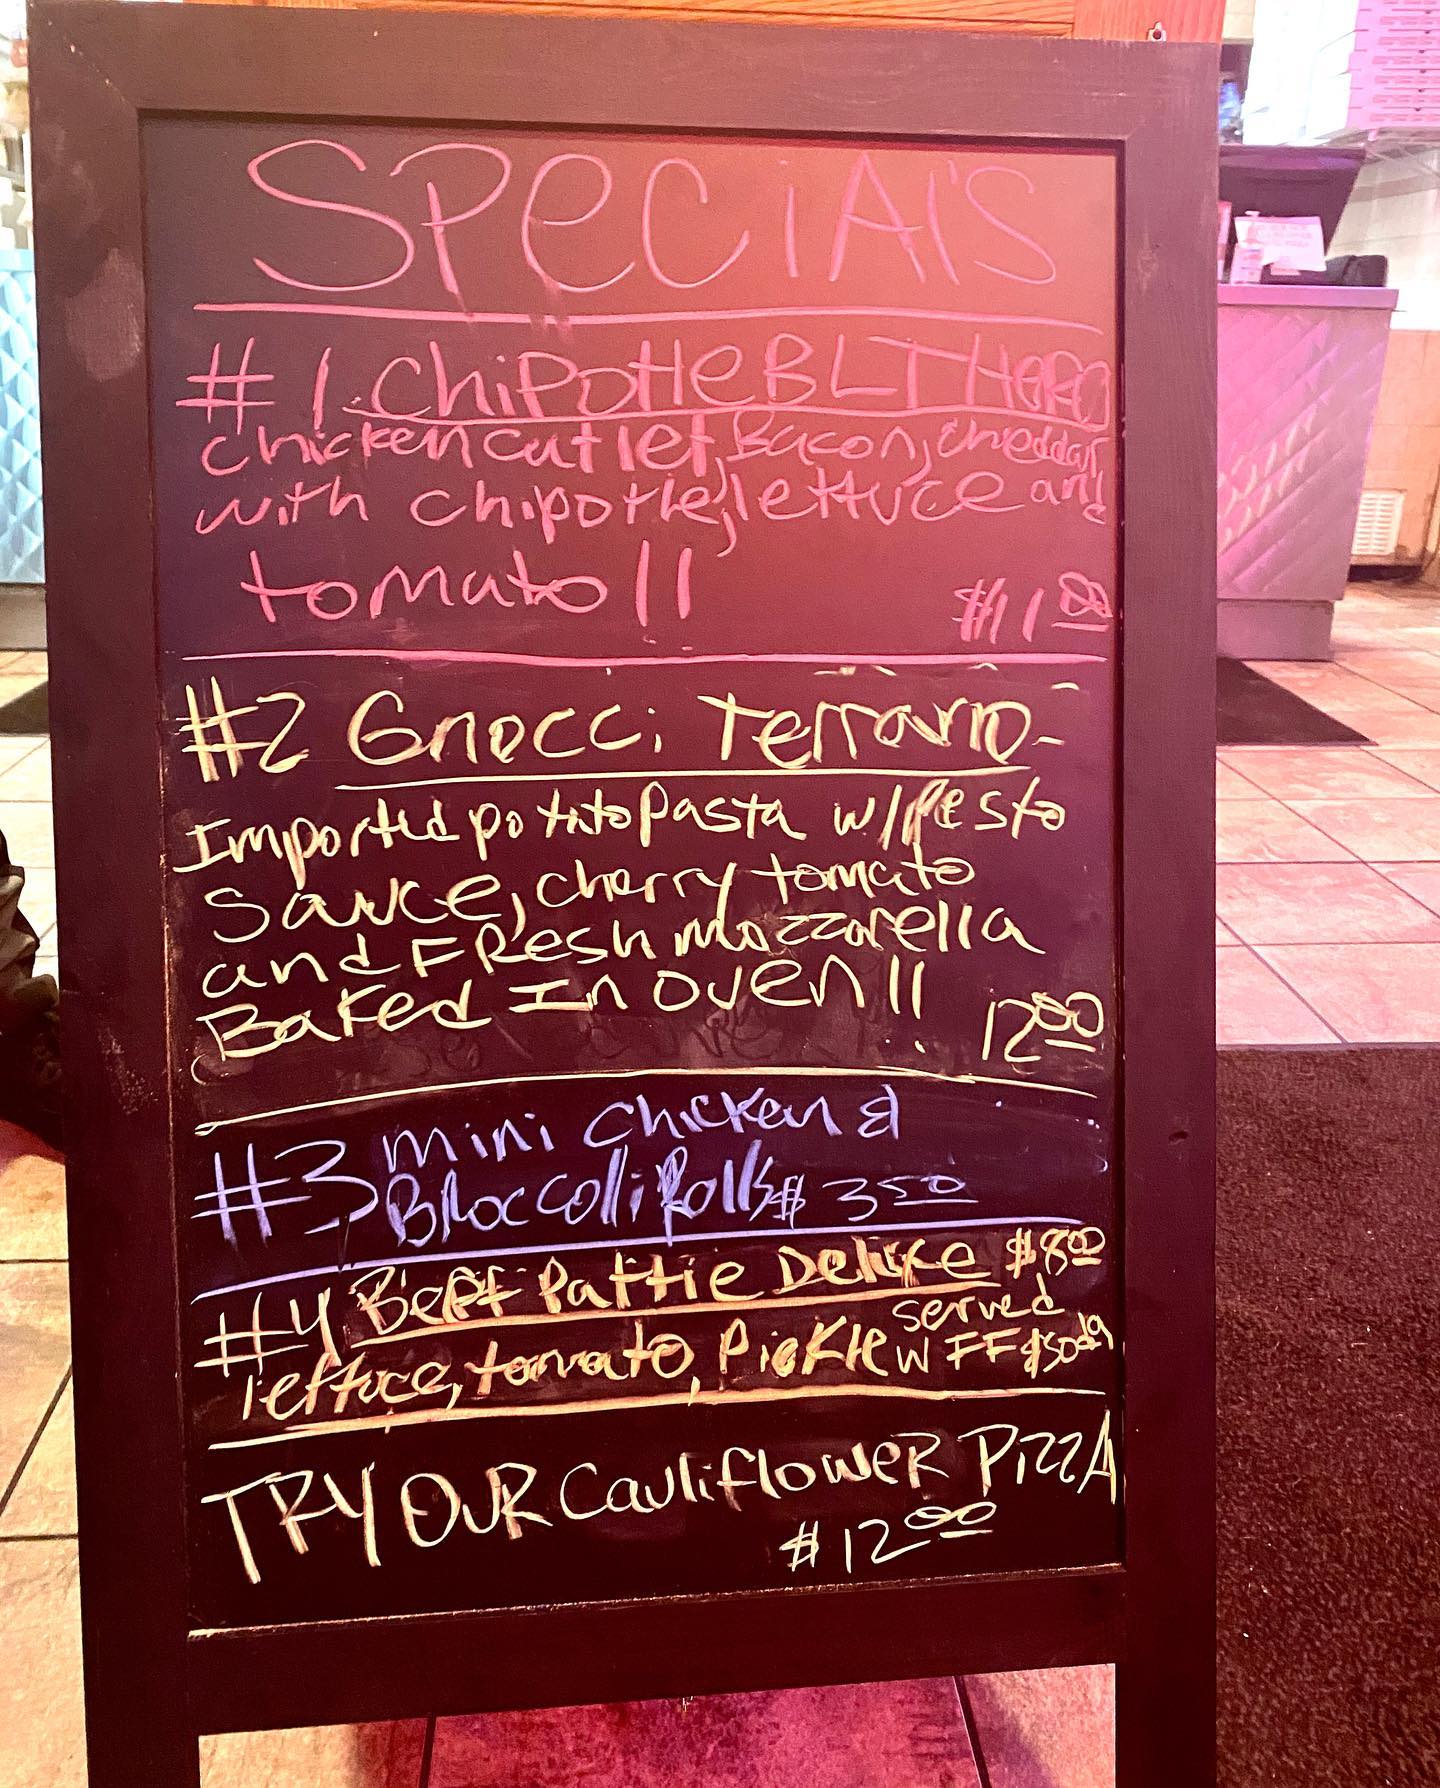 SPeCiAl'S
#1. ChiPotle BLT HeRO
Chicken cutlet, Bacon, cheddar,
with chipotle, lettuce and
tomato!! $11.00
#2 Gnocci Terrano-
Imported potato Pasta w/ Pesto
Sauce, cherry tomato
and FResh mozzarella
Baked In oven!! 12.00
#3 mini Chicken &
BRoccoli Rolls $3.50
#4 Beef Pattie Deluxe $8.00
lettuce, tomato, Pickle served
w FF & Soda
TRY OUR CauliflOweR PiZZA
$12.00